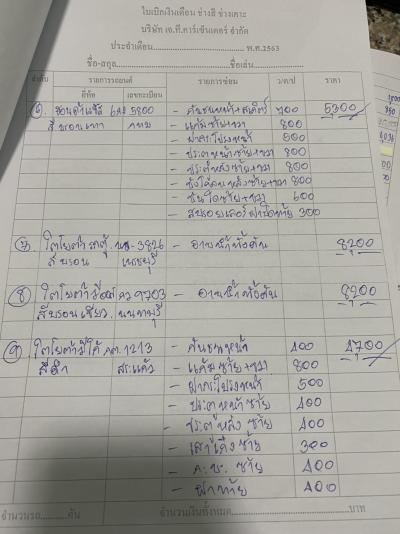 ใบเบิกเงินเดือน ช่างสี ช่างเคาะ
บริษัท เจ.ที.คาร์เซ็นเตอร์ จำกัด
ประจำเดือน พ.ศ.2563
ชื่อ-สกุล ชื่อเล่น
ลำดับ รายการรถยนต์ รายการซ่อม ว/ด/ป ราคา
ยี่ห้อ เลขทะเบียน
⑥ ฮอนด้า 5800 - กันชนหน้า+สเกิร์ต 700 5,300
สีบรอนเทา กทม - แก้มซ้าย+ขวา 800
- ฝากระโปรง 500
- ประตูหน้าซ้าย+ขวา 800
- ประตูหลังซ้าย+ขวา 800
- บังโคลนหลังซ้าย+ขวา 800
- ซ้าย+ขวา 600
- 300
⑦ โตโยต้า -3826 - อาบน้ำทั้งคัน 8,200
สีบรอน เพชรบุรี
⑧ โตโยต้า 9703 - อาบน้ำทั้งคัน 8,200
สีบรอนเขียว นนทบุรี
⑨ โตโยต้า 1213 - กันชนหน้า 400 4,700
สีดำ สระแก้ว - แก้มซ้าย+ขวา 800
- ฝากระโปรงหน้า 500
- ประตูหน้าซ้าย 400
- ประตูหลังซ้าย 400
- เสาเก๋งซ้าย 300
- ซ้าย 400
- ฝาท้าย 400
จำนวนรถ คัน จำนวนเงินทั้งหมด บาท